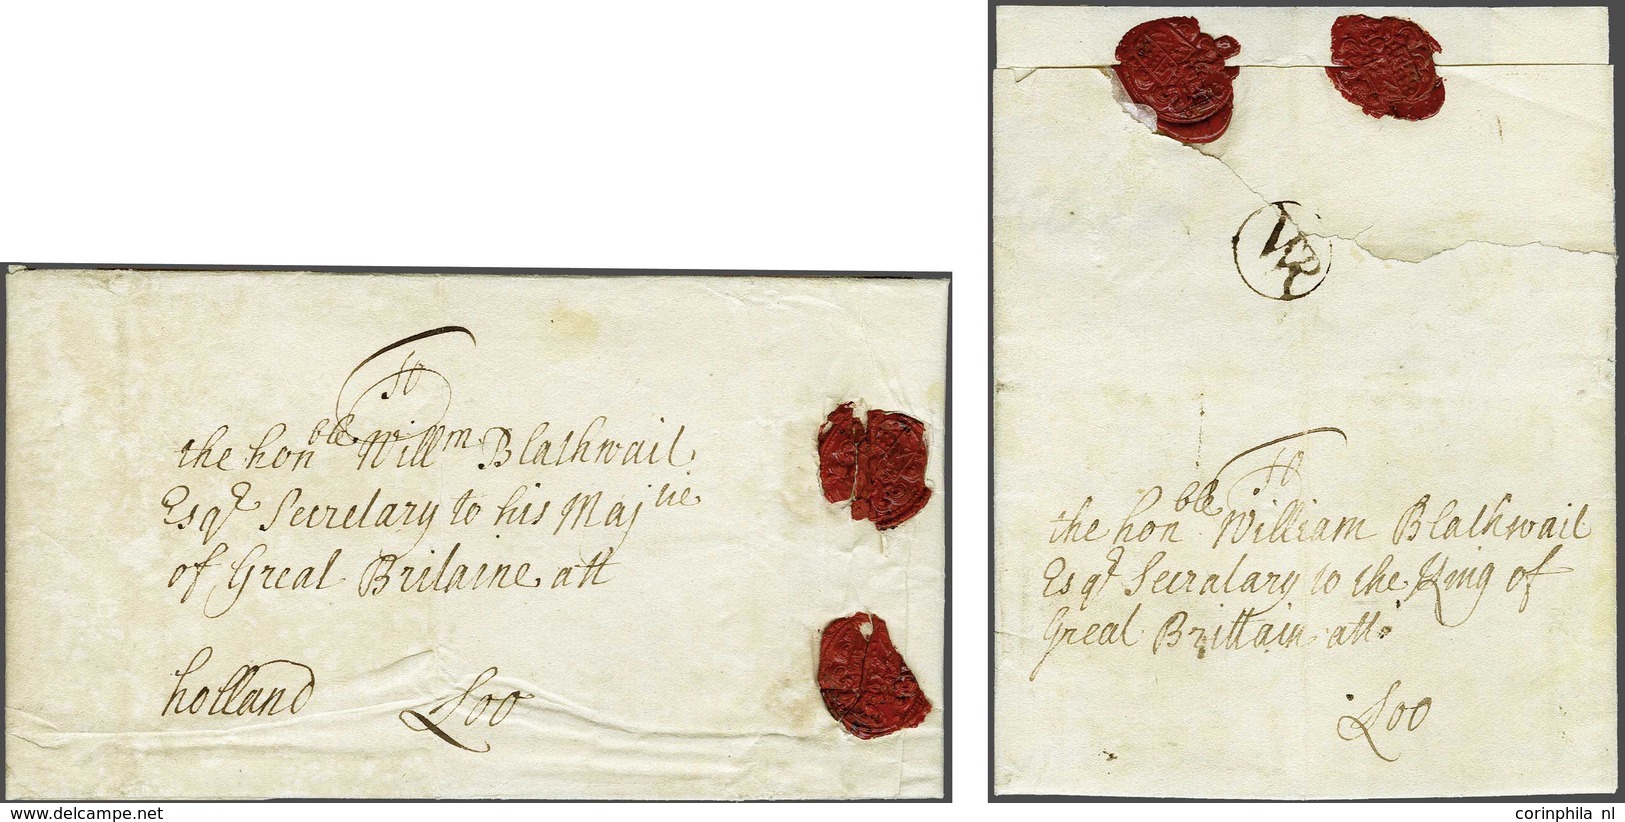 To
the honble Willm Blathwait
Esqr Secretary to his Majtie
of Great Britaine att
holland Loo
To
the honble William Blathwait
Esqr Secratary to the King of
Great Brittain att
Loo
delcampe.net
corinphila nl